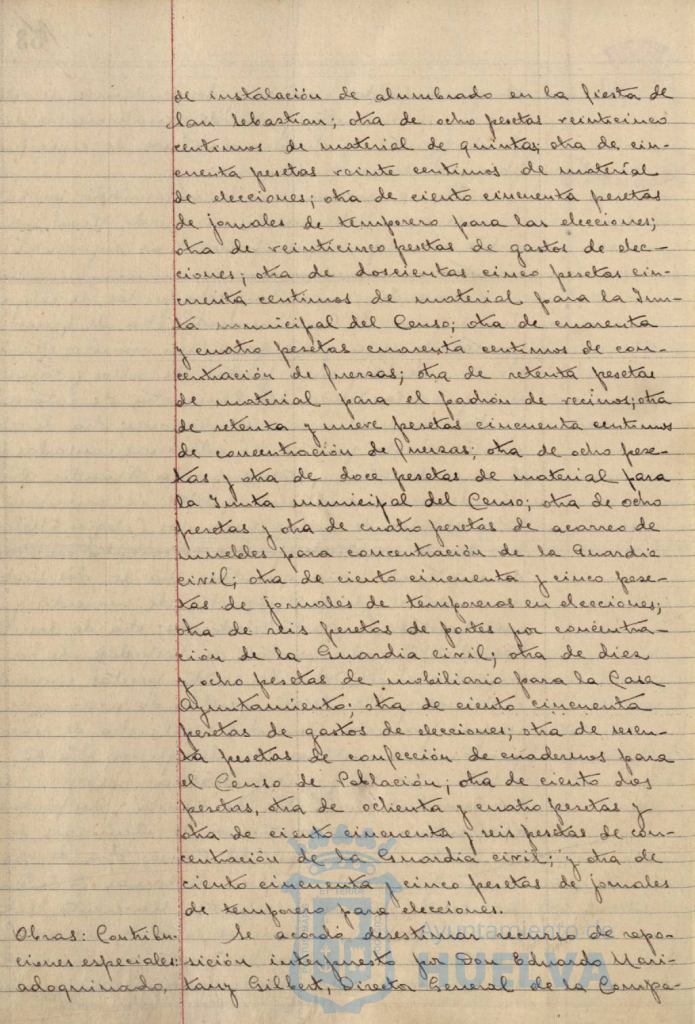 de instalación de alumbrado en la fiesta de
San Sebastian; otra de ocho pesetas veinticinco
centimos de material de quintas; otra de cin-
cuenta pesetas veinte centimos de material
de elecciones; otra de ciento cincuenta pesetas
de jornales de temporero para las elecciones;
otra de veinticinco pesetas de gastos de elec-
ciones; otra de doscientas cinco pesetas cin-
cuenta centimos de material para la Jun-
ta municipal del Censo; otra de cuarenta
y cuatro pesetas cuarenta centimos de con-
centración de fuerzas; otra de setenta pesetas
de material para el padrón de vecinos; otra
de setenta y nueve pesetas cincuenta centimos
de concentración de fuerzas; otra de ocho pese-
tas y otra de doce pesetas de material para
la Junta municipal del Censo; otra de ocho
pesetas y otra de cuatro pesetas de acarreo de
muebles para concentración de la Guardia
civil; otra de ciento cincuenta y cinco pese-
tas de jornales de temporeros en elecciones;
otra de seis pesetas de portes por concentra-
ción de la Guardia civil; otra de diez
y ocho pesetas de mobiliario para la Casa
Ayuntamiento; otra de ciento cincuenta
pesetas de gastos de elecciones; otra de sesen-
ta pesetas de confección de cuadernos para
el Censo de Población; otra de ciento dos
pesetas, otra de ochenta y cuatro pesetas y
otra de ciento cincuenta y seis pesetas de con-
centración de la Guardia civil; y otra de
ciento cincuenta y cinco pesetas de jornales
de temporero para elecciones.
Obras: Contribu-
ciones especiales
adoquinado,
Se acordó desestimar recurso de repo-
sición interpuesto por Don Eduardo Mari-
tany Gilbert, Director General de la Compa-
Ayuntamiento de
HUELVA